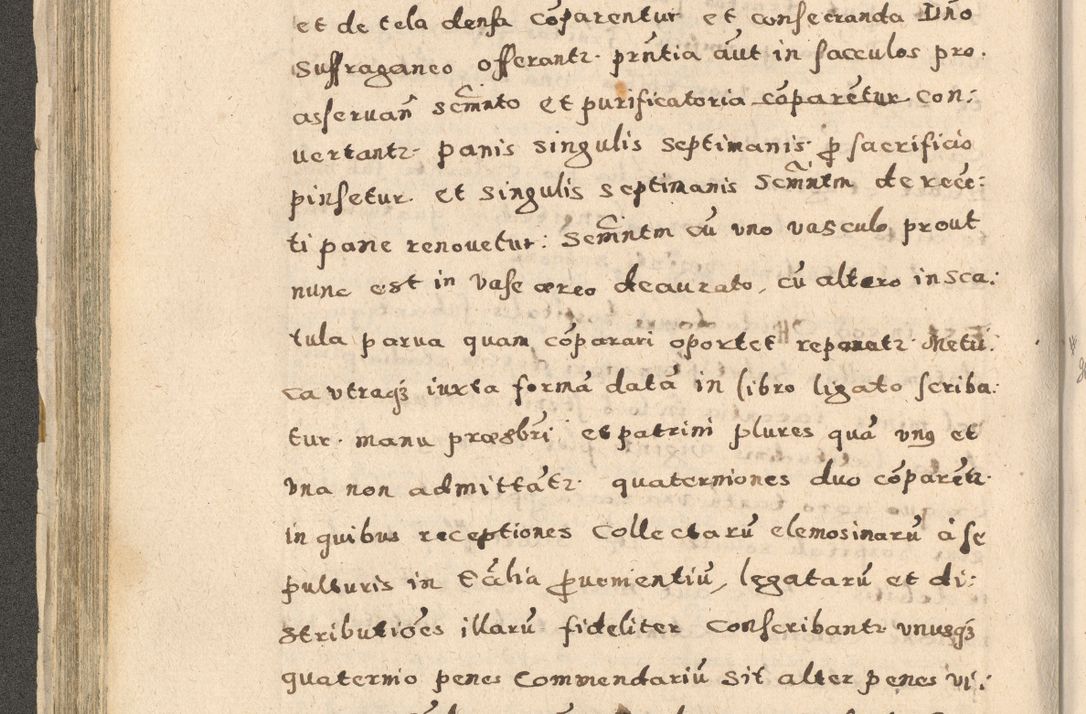 et de tela densa cōparentur et consecranda Dño
Suffraganeo offerantr. prñtia aut in sacculos pro.
asseruañ scm̃nto et purificatoria cōparētur con:
uertantr. panis singulis septimanis p̱ sacrificio
pinsetur. et singulis septimanis Scm̃ntm de rece:
ti pane renouetur: Scm̃ntm cū vno vasculo prout
nunc est in vase æreo deaurato, cū altero in sca:
tula parua quam cōparari oportet reponatr. Metri:
ca vtraqȝ iuxta formā datā in libro ligato scriba:
tur. manu præsbr̄i et patrini plures quā vnꝯ et
vna non admittātr. quaterniones duo cōparētr.
in quibus receptiones Collectarū elemosinarū à se
pulturis in Ecc̃lia ꝓuenientiū, legatarū et di:
stributiōēs illarū fideliter Conscribantr vnusqȝ
quaternio penes Commendariū sit alter penes vi: